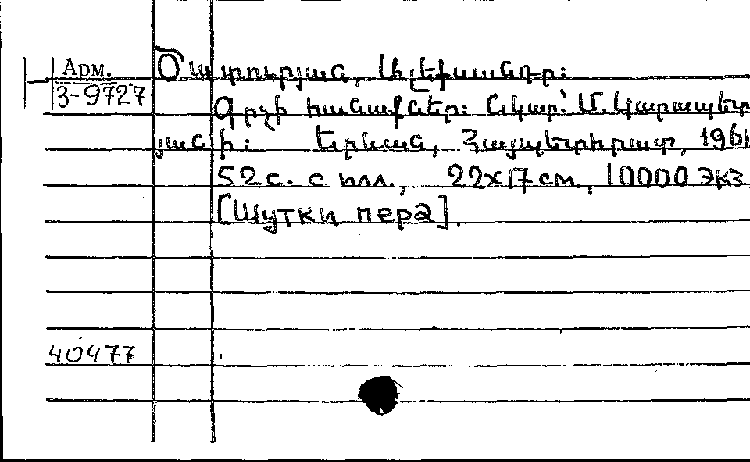 Адм.
3-9727
Ծատուրյան, Ալեքսանդր։
Գրչի հանաքներ։ Նկար՝ Մ. Կարապետ
յանի։ Երևան, Հայպետհրատ, 1961
52 с. с илл., 22x17 см., 10000 экз
[Шутки пера].
40477